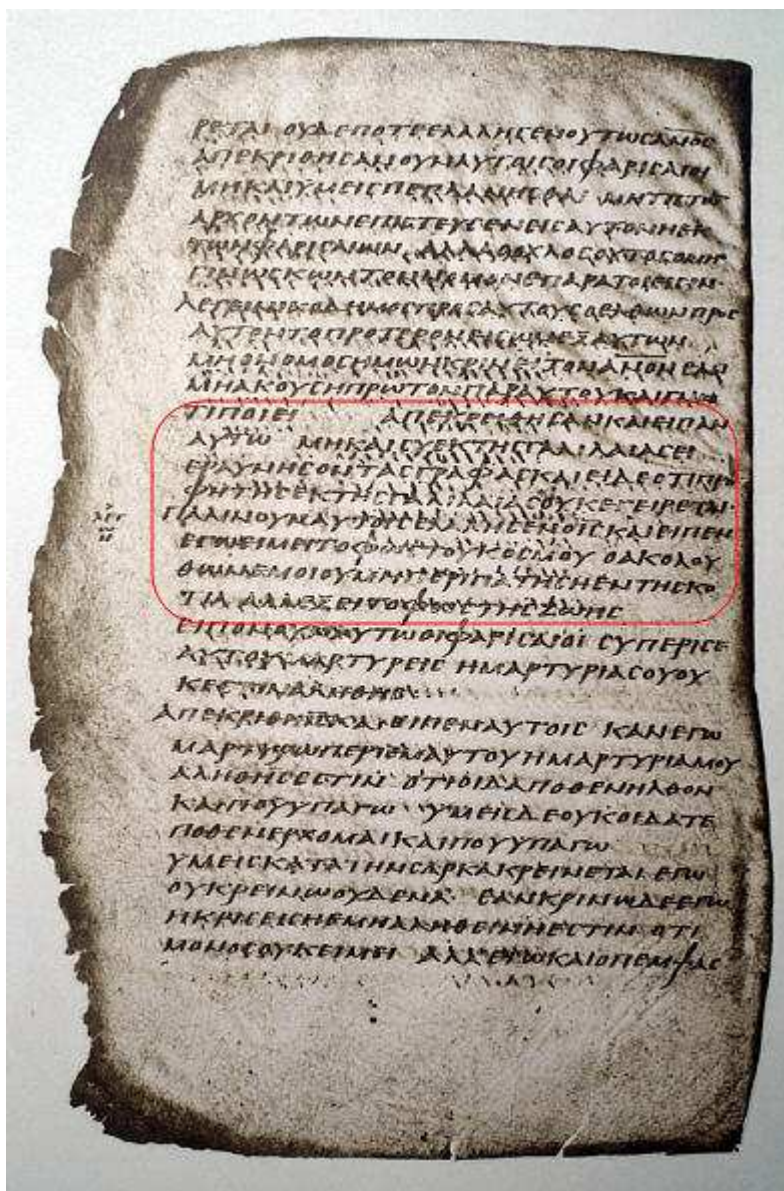 ΡΕΤΑΙ ΟΥΔΕΠΟΤΕ ΕΛΑΛΗCΕΝ ΟΥΤΩC ΑΝΟC
ΑΠΕΚΡΙΘΗCΑΝ ΟΥΝ ΑΥΤΟΙC ΟΙ ΦΑΡΙCΑΙΟΙ
ΜΗ ΚΑΙ ΥΜΕΙC ΠΕΠΛΑΝΗCΘΑΙ ΜΗ ΤΙC ΤΩ
ΑΡΧΟΝΤΩΝ ΕΠΙCΤΕΥCΕΝ ΕΙC ΑΥΤΟΝ Η ΕΚ
ΤΩΝ ΦΑΡΙCΑΙΩΝ ΑΛΛΑ Ο ΟΧΛΟC ΟΥΤΟC Ο ΜΗ
ΓΙΝΩCΚΩΝ ΤΟΝ ΝΟΜΟΝ ΕΠΑΡΑΤΟΙ ΕΙCΙΝ
ΛΕΓΕΙ ΝΙΚΟΔΗΜΟC ΠΡΟC ΑΥΤΟΥC Ο ΕΛΘΩΝ ΠΡΟC
ΑΥΤΟΝ ΤΟ ΠΡΟΤΕΡΟΝ ΕΙC ΩΝ ΕΞ ΑΥΤΩΝ
ΜΗ Ο ΝΟΜΟC ΗΜΩΝ ΚΡΙΝΕΙ ΤΟΝ ΑΝΟΝ ΕΑΝ
ΜΗ ΑΚΟΥCΗ ΠΡΩΤΟΝ ΠΑΡ ΑΥΤΟΥ ΚΑΙ ΓΝΩ
ΤΙ ΠΟΙΕΙ ΑΠΕΚΡΕΙΘΗCΑΝ ΚΑΙ ΕΙΠΑΝ
ΑΥΤΩ ΜΗ ΚΑΙ CΥ ΕΚ ΤΗC ΓΑΛΙΛΑΙΑC ΕΙ
ΕΡΑΥΝΗCΟΝ ΤΑC ΓΡΑΦΑC ΚΑΙ ΕΙΔΕ ΟΤΙ ΠΡΟ
ΦΗΤΗC ΕΚ ΤΗC ΓΑΛΙΛΑΙΑC ΟΥΚ ΕΓΕΙΡΕΤΑΙ
ΠΑΛΙΝ ΟΥΝ ΑΥΤΟΙC ΕΛΑΛΗCΕΝ Ο ΙC ΚΑΙ ΕΙΠΕΝ
ΕΓΩ ΕΙΜΕΙ ΤΟ ΦΩC ΤΟΥ ΚΟCΜΟΥ Ο ΑΚΟΛΟΥ
ΘΩΝ ΕΜΟΙ ΟΥ ΜΗ ΠΕΡΙΠΑΤΗCΗ ΕΝ ΤΗ CΚΟ
ΤΙΑ ΑΛΛ ΕΞΕΙ ΤΟ ΦΩC ΤΗC ΖΩΗC
ΕΙΠΟΝ ΟΥΝ ΑΥΤΩ ΟΙ ΦΑΡΙCΑΙΟΙ CΥ ΠΕΡΙ CΕ
ΑΥΤΟΥ ΜΑΡΤΥΡΕΙC Η ΜΑΡΤΥΡΙΑ CΟΥ ΟΥ
Κ ΕCΤΙΝ ΑΛΗΘΗC
ΑΠΕΚΡΙΘΗ ΙC ΚΑΙ ΕΙΠΕΝ ΑΥΤΟΙC ΚΑΝ ΕΓΩ
ΜΑΡΤΥΡΩ ΠΕΡΙ ΕΜΑΥΤΟΥ Η ΜΑΡΤΥΡΙΑ ΜΟΥ
ΑΛΗΘΗC ΕCΤΙΝ ΟΤΙ ΟΙΔΑ ΠΟΘΕΝ ΗΛΘΟΝ
ΚΑΙ ΠΟΥ ΥΠΑΓΩ ΥΜΕΙC ΔΕ ΟΥΚ ΟΙΔΑΤΕ
ΠΟΘΕΝ ΕΡΧΟΜΑΙ ΚΑΙ ΠΟΥ ΥΠΑΓΩ
ΥΜΕΙC ΚΑΤΑ ΤΗΝ CΑΡΚΑ ΚΡΕΙΝΕΤΑΙ ΕΓΩ
ΟΥ ΚΡΕΙΝΩ ΟΥΔΕΝΑ ΕΑΝ ΚΡΙΝΩ ΔΕ ΕΓΩ
Η ΚΡΙCΕΙC Η ΕΜΗ ΑΛΗΘΕΙΝΗ ΕCΤΙΝ ΟΤΙ
ΜΟΝΟC ΟΥΚ ΕΙΜΕΙ ΑΛΛ ΕΓΩ ΚΑΙ Ο ΠΕΜΨΑC